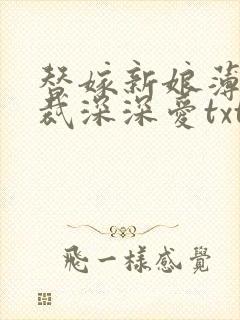 替嫁新娘薄
裁深深爱txt
飛一樣感覺